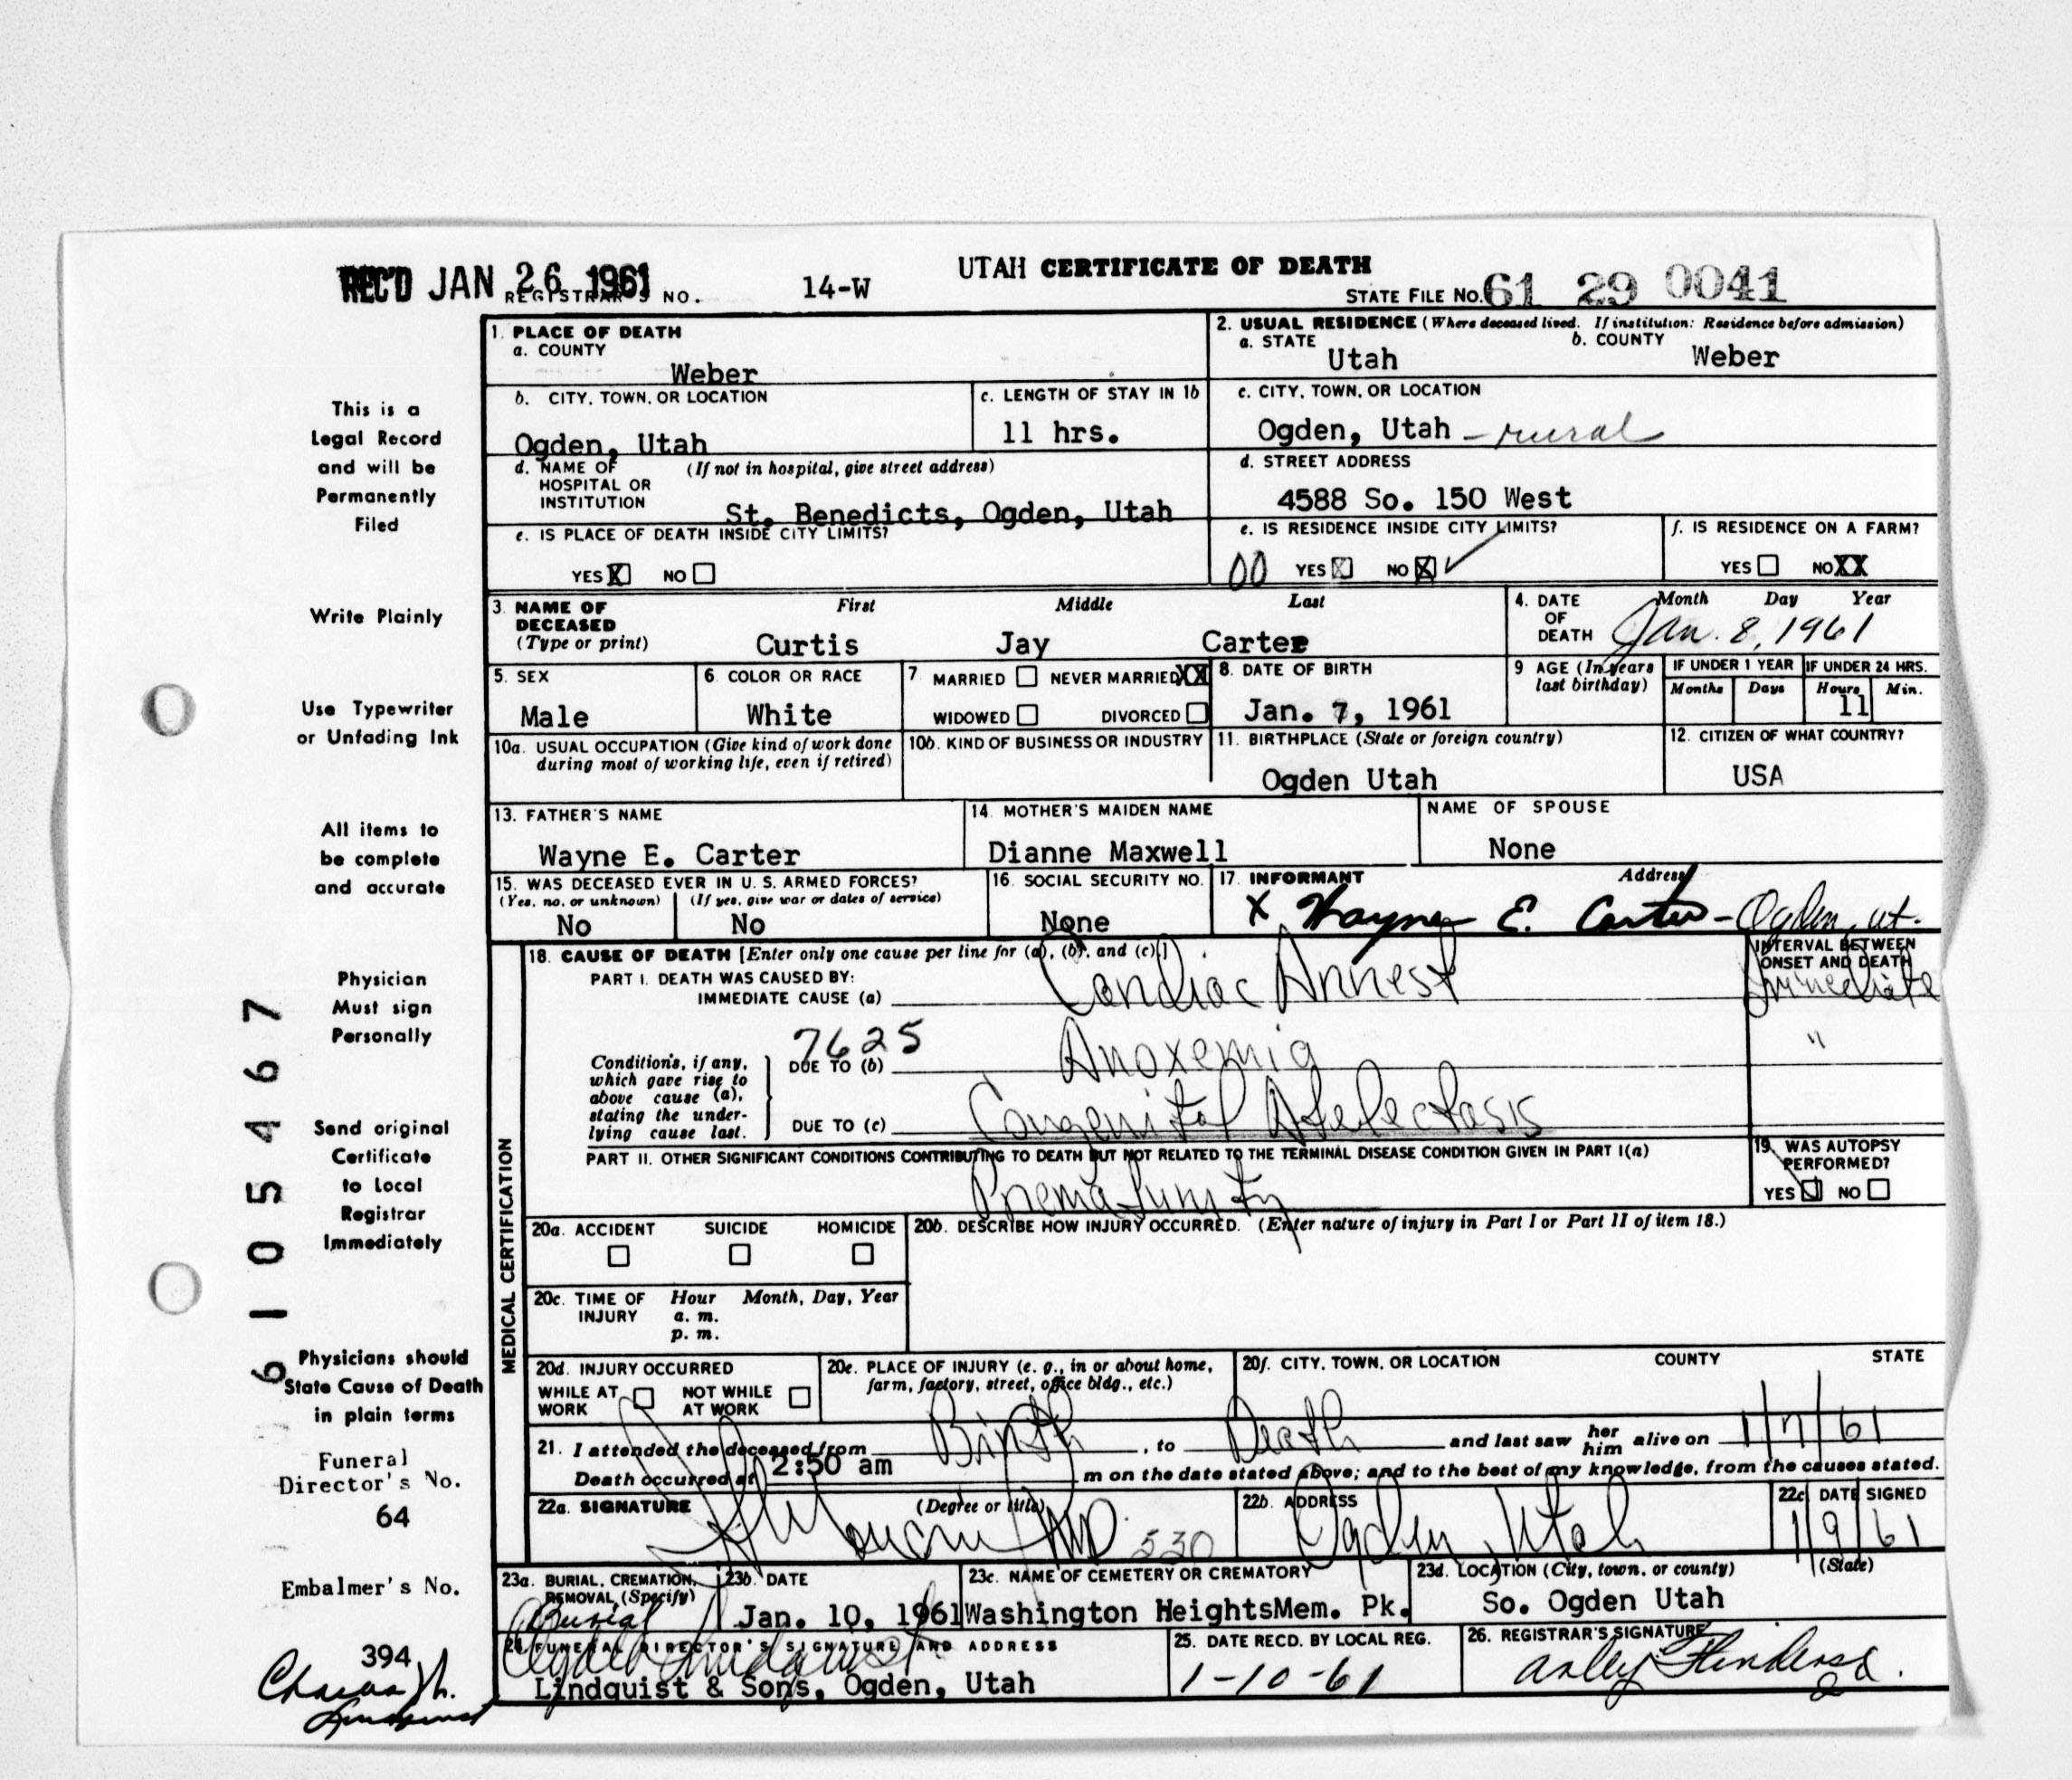 UTAH CERTIFICATE OF DEATH
REC'D JAN 26 1961 REGISTRAR'S NO. 14-W STATE FILE NO. 61 29 0041
1. PLACE OF DEATH
a. COUNTY
Weber
2. USUAL RESIDENCE (Where deceased lived. If institution: Residence before admission)
a. STATE b. COUNTY
Utah Weber
b. CITY, TOWN, OR LOCATION
Ogden, Utah
c. LENGTH OF STAY IN 1b
11 hrs.
c. CITY, TOWN, OR LOCATION
Ogden, Utah - rural
d. NAME OF (If not in hospital, give street address)
HOSPITAL OR
INSTITUTION
St. Benedicts, Ogden, Utah
d. STREET ADDRESS
4588 So. 150 West
e. IS PLACE OF DEATH INSIDE CITY LIMITS?
YES X NO
e. IS RESIDENCE INSIDE CITY LIMITS?
00 YES X NO X
f. IS RESIDENCE ON A FARM?
YES NO XX
3. NAME OF DECEASED (Type or print)
First Middle Last
Curtis Jay Carter
4. DATE OF DEATH
Month Day Year
Jan. 8, 1961
5. SEX
Male
6. COLOR OR RACE
White
7 MARRIED NEVER MARRIED XX
WIDOWED DIVORCED
8. DATE OF BIRTH
Jan. 7, 1961
9 AGE (In years last birthday)
IF UNDER 1 YEAR IF UNDER 24 HRS.
Months Days Hours Min.
11
10a. USUAL OCCUPATION (Give kind of work done
during most of working life, even if retired)
10b. KIND OF BUSINESS OR INDUSTRY
11. BIRTHPLACE (State or foreign country)
Ogden Utah
12. CITIZEN OF WHAT COUNTRY?
USA
13. FATHER'S NAME
Wayne E. Carter
14. MOTHER'S MAIDEN NAME
Dianne Maxwell
NAME OF SPOUSE
None
15. WAS DECEASED EVER IN U. S. ARMED FORCES?
(Yes, no, or unknown) (If yes, give war or dates of service)
No No
16. SOCIAL SECURITY NO.
None
17. INFORMANT Address
X Wayne E. Carter - Ogden, ut.
MEDICAL CERTIFICATION
18. CAUSE OF DEATH [Enter only one cause per line for (a), (b), and (c).]
PART I. DEATH WAS CAUSED BY:
IMMEDIATE CAUSE (a) Cardiac Arrest
INTERVAL BETWEEN
ONSET AND DEATH
Immediate
7625
Conditions, if any,
which gave rise to
above cause (a),
stating the under-
lying cause last.
DUE TO (b) Anoxemia "
DUE TO (c) Congenital Atelectasis
PART II. OTHER SIGNIFICANT CONDITIONS CONTRIBUTING TO DEATH BUT NOT RELATED TO THE TERMINAL DISEASE CONDITION GIVEN IN PART I(a)
Prematurity
19. WAS AUTOPSY
PERFORMED?
YES NO
20a. ACCIDENT SUICIDE HOMICIDE
20b. DESCRIBE HOW INJURY OCCURRED. (Enter nature of injury in Part I or Part II of item 18.)
20c. TIME OF INJURY Hour Month, Day, Year
a. m.
p. m.
20d. INJURY OCCURRED
WHILE AT WORK NOT WHILE AT WORK
20e. PLACE OF INJURY (e. g., in or about home,
farm, factory, street, office bldg., etc.)
20f. CITY, TOWN, OR LOCATION COUNTY STATE
21. I attended the deceased from Birth, to Death and last saw her him alive on 1/7/61
Death occurred at 2:50 am m on the date stated above; and to the best of my knowledge, from the causes stated.
22a. SIGNATURE (Degree or title)
MD 530
22b. ADDRESS
Ogden, Utah
22c DATE SIGNED
1/9/61
23a. BURIAL, CREMATION,
REMOVAL, (Specify)
Burial
23b. DATE
Jan. 10, 1961
23c. NAME OF CEMETERY OR CREMATORY
Washington HeightsMem. Pk.
23d. LOCATION (City, town, or county) (State)
So. Ogden Utah
24. FUNERAL DIRECTOR'S SIGNATURE AND ADDRESS
Lindquist & Sons, Ogden, Utah
25. DATE RECD. BY LOCAL REG.
1-10-61
26. REGISTRAR'S SIGNATURE
This is a
Legal Record
and will be
Permanently
Filed
Write Plainly
Use Typewriter
or Unfading Ink
All items to
be complete
and accurate
Physician
Must sign
Personally
Send original
Certificate
to Local
Registrar
Immediately
Physicians should
State Cause of Death
in plain terms
Funeral
Director's No.
64
Embalmer's No.
394
Lindquist
6105467